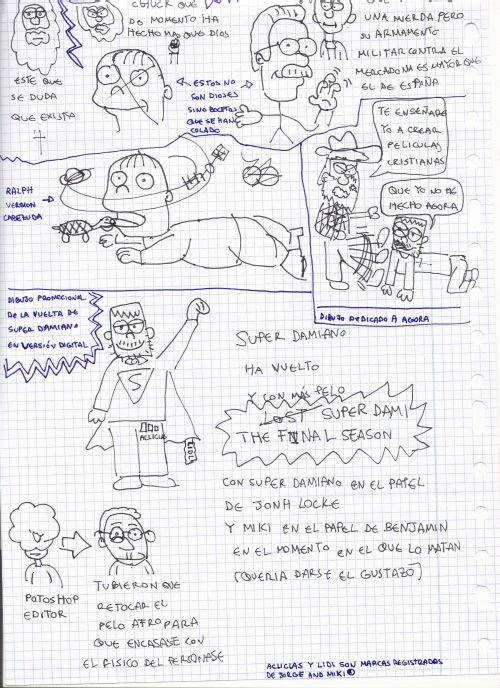 DE MOMENTO HA
HECHO MAS QUE DIOS
ESTE QUE
SE DUDA
QUE EXISTA
ESTOS NO
SON DIOSES
SINO BOCETOS
QUE SE HAN
COLADO
UNA MIERDA PERO
SU ARMAMENTO
MILITAR CONTRA EL
MERCADONA ES MAYOR QUE
EL DE ESPAÑA
TE ENSEÑARE
YO A CREAR
PELICULAS
CRISTIANAS
QUE YO NO HE
HECHO AGORA
RALPH
VERSION
CABEZUDA
DIBUJO DEDICADO A AGORA
DIBUJO PROMOCIONAL
DE LA VUELTA DE
SUPER DAMIANO
EN VERSIÓN DIGITAL
S
ACLICLAS
LIDL
SUPER DAMIANO
HA VUELTO
Y CON MÁS PELO
LOST SUPER DAMI
THE FINAL SEASON
CON SUPER DAMIANO EN EL PAPEL
DE JONH LOCKE
Y MIKI EN EL PAPEL DE BENJAMIN
EN EL MOMENTO EN EL QUE LO MATAN
(QUERIA DARSE EL GUSTAZO)
POTOSHOP
EDITOR
TUBIERON QUE
RETOCAR EL
PELO AFRO PARA
QUE ENCASASE CON
EL FISICO DEL PERSONAJE
ACLICLAS Y LIDL SON MARCAS REGISTRADAS
DE JORGE AND MIKI®